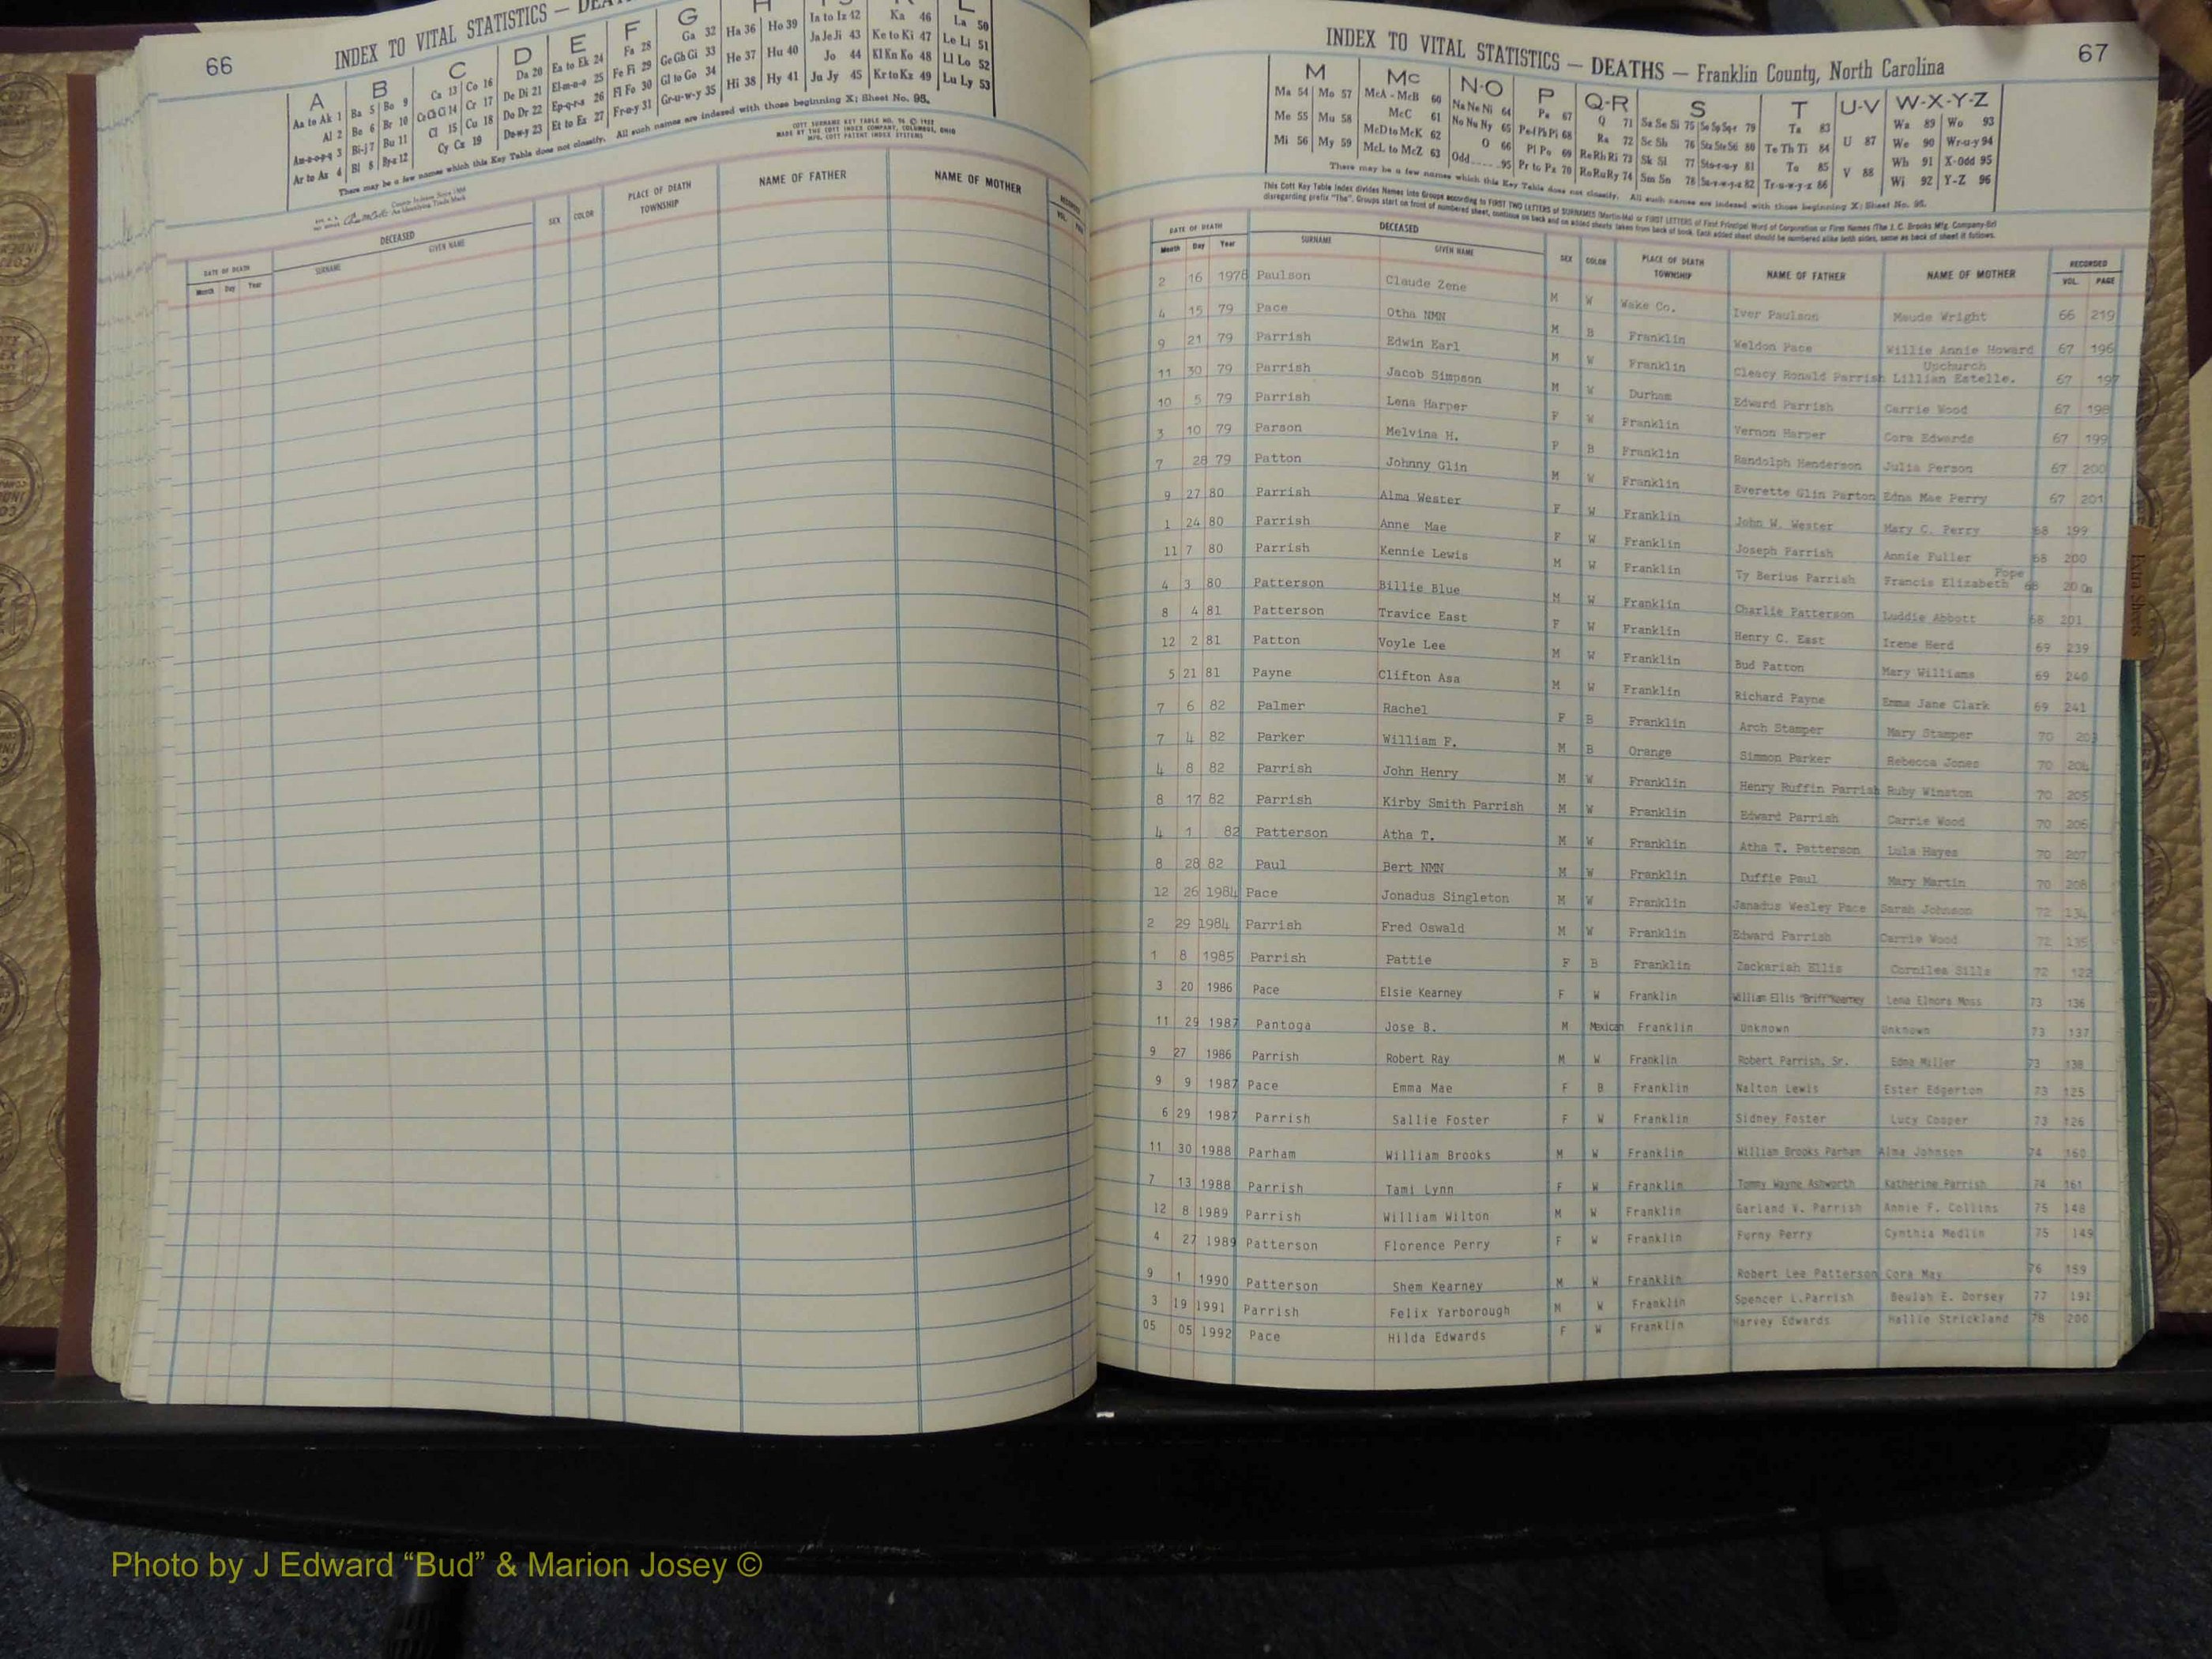 66
INDEX TO VITAL STATISTICS — DEA
A B C D E F G
Aa to Ak 1 Ba 5 Bo 9 Ca 13 Co 16 Da 20 Ea to Ek 24 Fa 28 Ga 32 Ha 36 Ho 39 Ia to Iz 42 Ka 46 La 50
Al 2 Be 6 Br 10 Ce Ch Ci 14 Cr 17 De Di 21 El-m-n-o 25 Fe Fi 29 Ge Gh Gi 33 He 37 Hu 40 Ja Je Ji 43 Ke to Ki 47 Le Li 51
Am-n-o-p-q 3 Bi-j 7 Bu 11 Cl 15 Cu 18 Do Dr 22 Ep-q-r-s 26 Fl Fo 30 Gl to Go 34 Hi 38 Hy 41 Jo 44 Kl Kn Ko 48 Ll Lo 52
Ar to Az 4 Bl 8 By-z 12 Cy Cz 19 Dw-y 23 Et to Ez 27 Fr-u-y 31 Gr-u-w-y 35 Ju Jy 45 Kr to Kz 49 Lu Ly 53
There may be a few names which this Key Table does not classify. All such names are indexed with those beginning X; Sheet No. 95.
DATE OF DEATH
Month Day Year
DECEASED
SURNAME GIVEN NAME
SEX COLOR
PLACE OF DEATH
TOWNSHIP
NAME OF FATHER NAME OF MOTHER
67
INDEX TO VITAL STATISTICS — DEATHS — Franklin County, North Carolina
M Mc N-O P Q-R S T U-V W-X-Y-Z
Ma 54 Mo 57 McA - McB 60 Na Ne Ni 64 Pa 67 Q 71 Sa Se Si 75 So Sp Sq-r 79 Ta 83 U 87 Wa 89 Wo 93
Me 55 Mu 58 McC 61 No Nu Ny 65 Pe-f Ph Pi 68 Ra 72 Sc Sh 76 Sta Ste Sti 80 Te Th Ti 84 We 90 Wr-u-y 94
Mi 56 My 59 McD to McK 62 O 66 Pl Po 69 Re Rh Ri 73 Sk Sl 77 Sto-r-u-y 81 To 85 V 88 Wh 91 X-Odd 95
McL to McZ 63 Odd 95 Pr to Pz 70 Ro Ru Ry 74 Sm Sn 78 Su-v-w-y-z 82 Tr-u-w-y-z 86 Wi 92 Y-Z 96
There may be a few names which this Key Table does not classify. All such names are indexed with those beginning X; Sheet No. 95.
DATE OF DEATH DECEASED SEX COLOR PLACE OF DEATH TOWNSHIP NAME OF FATHER NAME OF MOTHER RECORDED
Month Day Year SURNAME GIVEN NAME VOL. PAGE
2 16 1978 Paulson Claude Zene M W Wake Co. Iver Paulson Maude Wright 66 219
4 15 79 Pace Otha NMN M B Franklin Weldon Pace Willie Annie Howard 67 196
9 21 79 Parrish Edwin Earl M W Franklin Cleacy Ronald Parrish Lillian Estelle. Upchurch 67 197
11 30 79 Parrish Jacob Simpson M W Durham Edward Parrish Carrie Wood 67 198
10 5 79 Parrish Lena Harper F W Franklin Vernon Harper Cora Edwards 67 199
3 10 79 Parson Melvina H. F B Franklin Randolph Henderson Julia Person 67 200
7 28 79 Patton Johnny Glin M W Franklin Everette Glin Parton Edna Mae Perry 67 201
9 27 80 Parrish Alma Wester F W Franklin John W. Wester Mary C. Perry 68 199
1 24 80 Parrish Anne Mae F W Franklin Joseph Parrish Annie Fuller 68 200
11 7 80 Parrish Kennie Lewis M W Franklin Ty Berius Parrish Francis Elizabeth Pope 68 200a
4 3 80 Patterson Billie Blue M W Franklin Charlie Patterson Luddie Abbott 68 201
8 4 81 Patterson Travice East F W Franklin Henry C. East Irene Herd 69 239
12 2 81 Patton Voyle Lee M W Franklin Bud Patton Mary Williams 69 240
5 21 81 Payne Clifton Asa M W Franklin Richard Payne Emma Jane Clark 69 241
7 6 82 Palmer Rachel F B Franklin Arch Stamper Mary Stamper 70 203
7 4 82 Parker William F. M B Orange Simmon Parker Rebecca Jones 70 204
4 8 82 Parrish John Henry M W Franklin Henry Ruffin Parrish Ruby Winston 70 205
8 17 82 Parrish Kirby Smith Parrish M W Franklin Edward Parrish Carrie Wood 70 206
4 1 82 Patterson Atha T. M W Franklin Atha T. Patterson Lula Hayes 70 207
8 28 82 Paul Bert NMN M W Franklin Duffie Paul Mary Martin 70 208
12 26 1984 Pace Jonadus Singleton M W Franklin Janadus Wesley Pace Sarah Johnson 72 134
2 29 1984 Parrish Fred Oswald M W Franklin Edward Parrish Carrie Wood 72 135
1 8 1985 Parrish Pattie F B Franklin Zackariah Ellis Cornilea Sills 72 122
3 20 1986 Pace Elsie Kearney F W Franklin William Ellis "Briff" Kearney Lena Elnora Moss 73 136
11 29 1987 Pantoga Jose B. M Mexican Franklin Unknown Unknown 73 137
9 27 1986 Parrish Robert Ray M W Franklin Robert Parrish, Sr. Edna Miller 73 138
9 9 1987 Pace Emma Mae F B Franklin Nalton Lewis Ester Edgerton 73 125
6 29 1987 Parrish Sallie Foster F W Franklin Sidney Foster Lucy Cooper 73 126
11 30 1988 Parham William Brooks M W Franklin William Brooks Parham Alma Johnson 74 160
7 13 1988 Parrish Tami Lynn F W Franklin Tommy Wayne Ashworth Katherine Parrish 74 161
12 8 1989 Parrish William Wilton M W Franklin Garland V. Parrish Annie F. Collins 75 148
4 27 1989 Patterson Florence Perry F W Franklin Furny Perry Cynthia Medlin 75 149
9 1 1990 Patterson Shem Kearney M W Franklin Robert Lee Patterson Cora May 76 159
3 19 1991 Parrish Felix Yarborough M W Franklin Spencer L.Parrish Beulah E. Dorsey 77 191
05 05 1992 Pace Hilda Edwards F W Franklin Harvey Edwards Hallie Strickland 78 200
Extra Sheets
Photo by J Edward “Bud” & Marion Josey ©